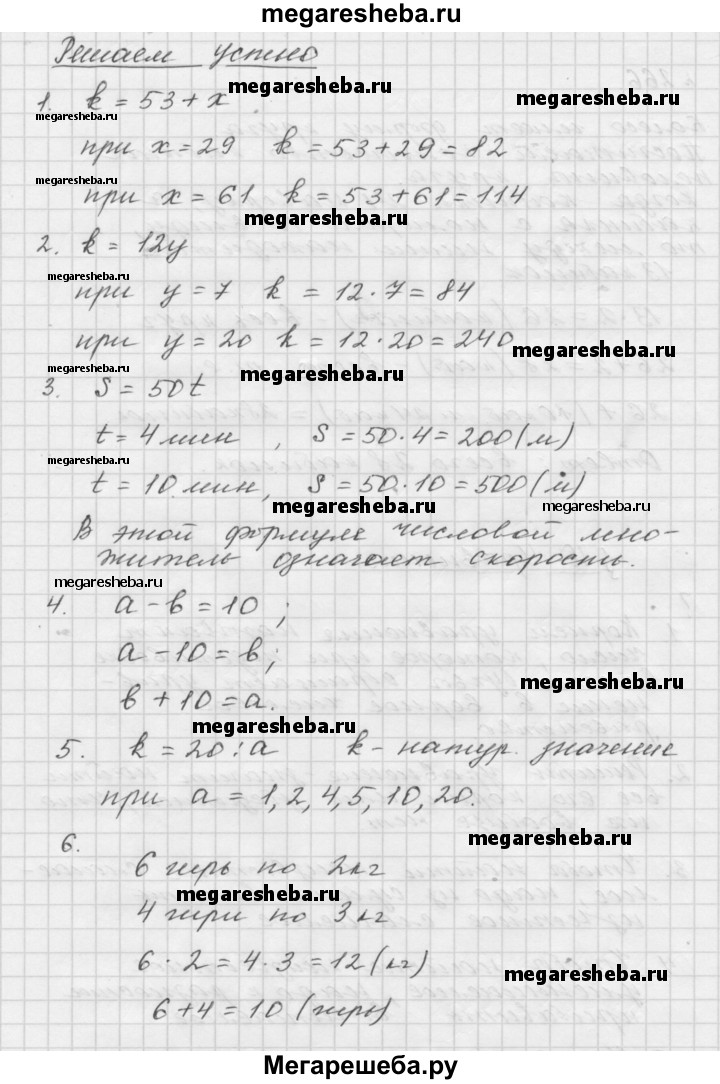 megaresheba.ru
Решаем устно
megaresheba.ru
1. k = 53 + x
megaresheba.ru
megaresheba.ru
при x = 29 k = 53 + 29 = 82
megaresheba.ru
при x = 61 k = 53 + 61 = 114
megaresheba.ru
2. k = 12y
megaresheba.ru
при y = 7 k = 12 · 7 = 84
при y = 20 k = 12 · 20 = 240
megaresheba.ru
megaresheba.ru
megaresheba.ru
3. S = 50t
t = 4 мин , S = 50 · 4 = 200 (м)
megaresheba.ru
t = 10 мин, S = 50 · 10 = 500 (м)
megaresheba.ru
megaresheba.ru
В этой формуле числовой мно-
житель означает скорость.
megaresheba.ru
4. a - в = 10 ;
megaresheba.ru
a - 10 = в;
megaresheba.ru
в + 10 = a.
megaresheba.ru
5. k = 20 : a k - натур. значение
при a = 1, 2, 4, 5, 10, 20.
megaresheba.ru
6.
6 гирь по 2 кг
megaresheba.ru
4 гири по 3 кг
6 · 2 = 4 · 3 = 12 (кг)
megaresheba.ru
6 + 4 = 10 (гирь)
Мегарешеба.ру